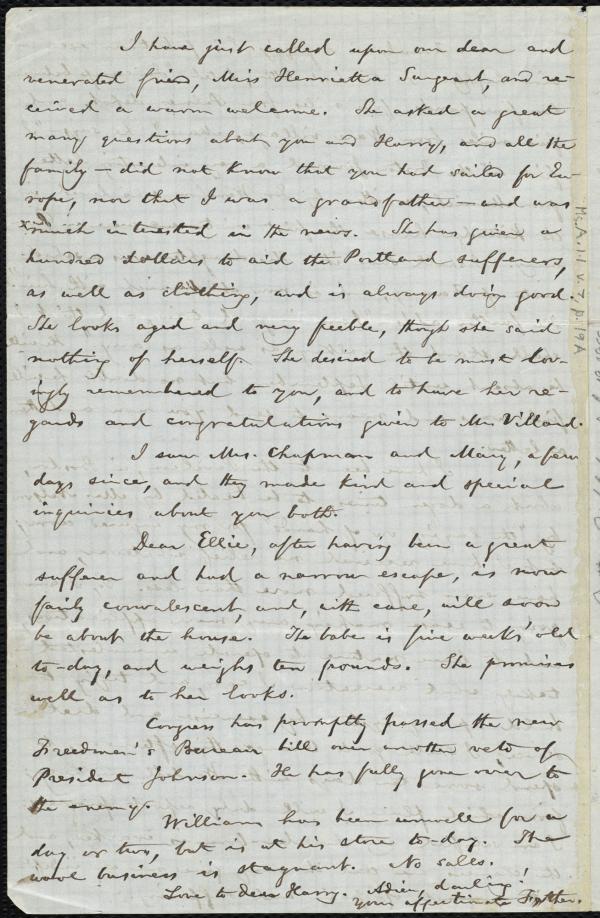 I have just called upon our dear and
venerated friend, Miss Henrietta Sargeant, and re-
ceived a warm welcome. She asked a great
many questions about you and Harry, and all the
family — did not know that you had sailed for Eu-
rope, nor that I was a grandfather — and was
much interested in the news. She has given a
hundred dollars to aid the Portland sufferers,
as well as clothing, and is always doing good.
She looks aged and very feeble, though she said
nothing of herself. She desired to be most lov-
ingly remembered to you, and to have her re-
gards and congratulations given to Mr. Villard.
I saw Mrs. Chapman and Mary, a few
days since, and they made kind and special
inquiries about you both.
Dear Ellie, after having been a great
sufferer and had a narrow escape, is now
fairly convalescent, and, with care, will soon
be about the house. The babe is five weeks' old
to-day, and weighs ten pounds. She promises
well as to her looks.
Congress has promptly passed the new
Freedmen's Bureau bill over another veto of
President Johnson. He has fully gone over to
the enemy.
William has been unwell for a
day or two, but is at his store to-day. The
wool business is stagnant. No sales.
Love to dear Harry. Adieu, darling!
Your affectionate Father.
Ms.A.1.1 v.7, p.19A